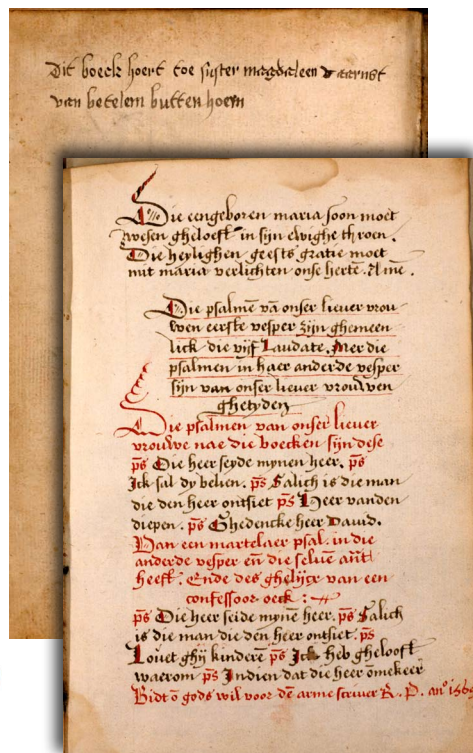 Dit boeck hoert toe suster magdaleen daarnst
van betelem butten hoern
Die eengeboren maria soon moet
wesen gheloeft in sijn ewighe throen.
Die heylighen geests gratie moet
mit maria verlichten onse hertē. Amē.
Die psalmē vā onser liever vrou
wen eerste vesper zijn ghemeen
lick die vijf Laudate. Mer die
psalmen in haer anderde vesper
sijn van onser liever vrouwen
ghetyden
Die psalmen van onser liever
vrouwe nae die boecken sijn dese
ps̄ Die heer seyde mynen heer. ps̄
Ick sal dy belien. ps̄ Salich is die man
die den heer ontsiet ps̄ Heer vanden
diepen. ps̄ Ghedencke heer David.
Van een martelaer psal. in die
anderde vesper eñ die selue ant̄
heeft. Ende des ghelijcx van een
confessoor oeck :
ps̄ Die heer seide mynē heer. ps̄ Salich
is die man die den heer ontsiet. ps̄
Lovet ghij kinderē ps̄ Ick heb ghelooft
waerom ps̄ Indien dat die heer
Bidt ō gods wil voor dē arme scriver R. P. anº